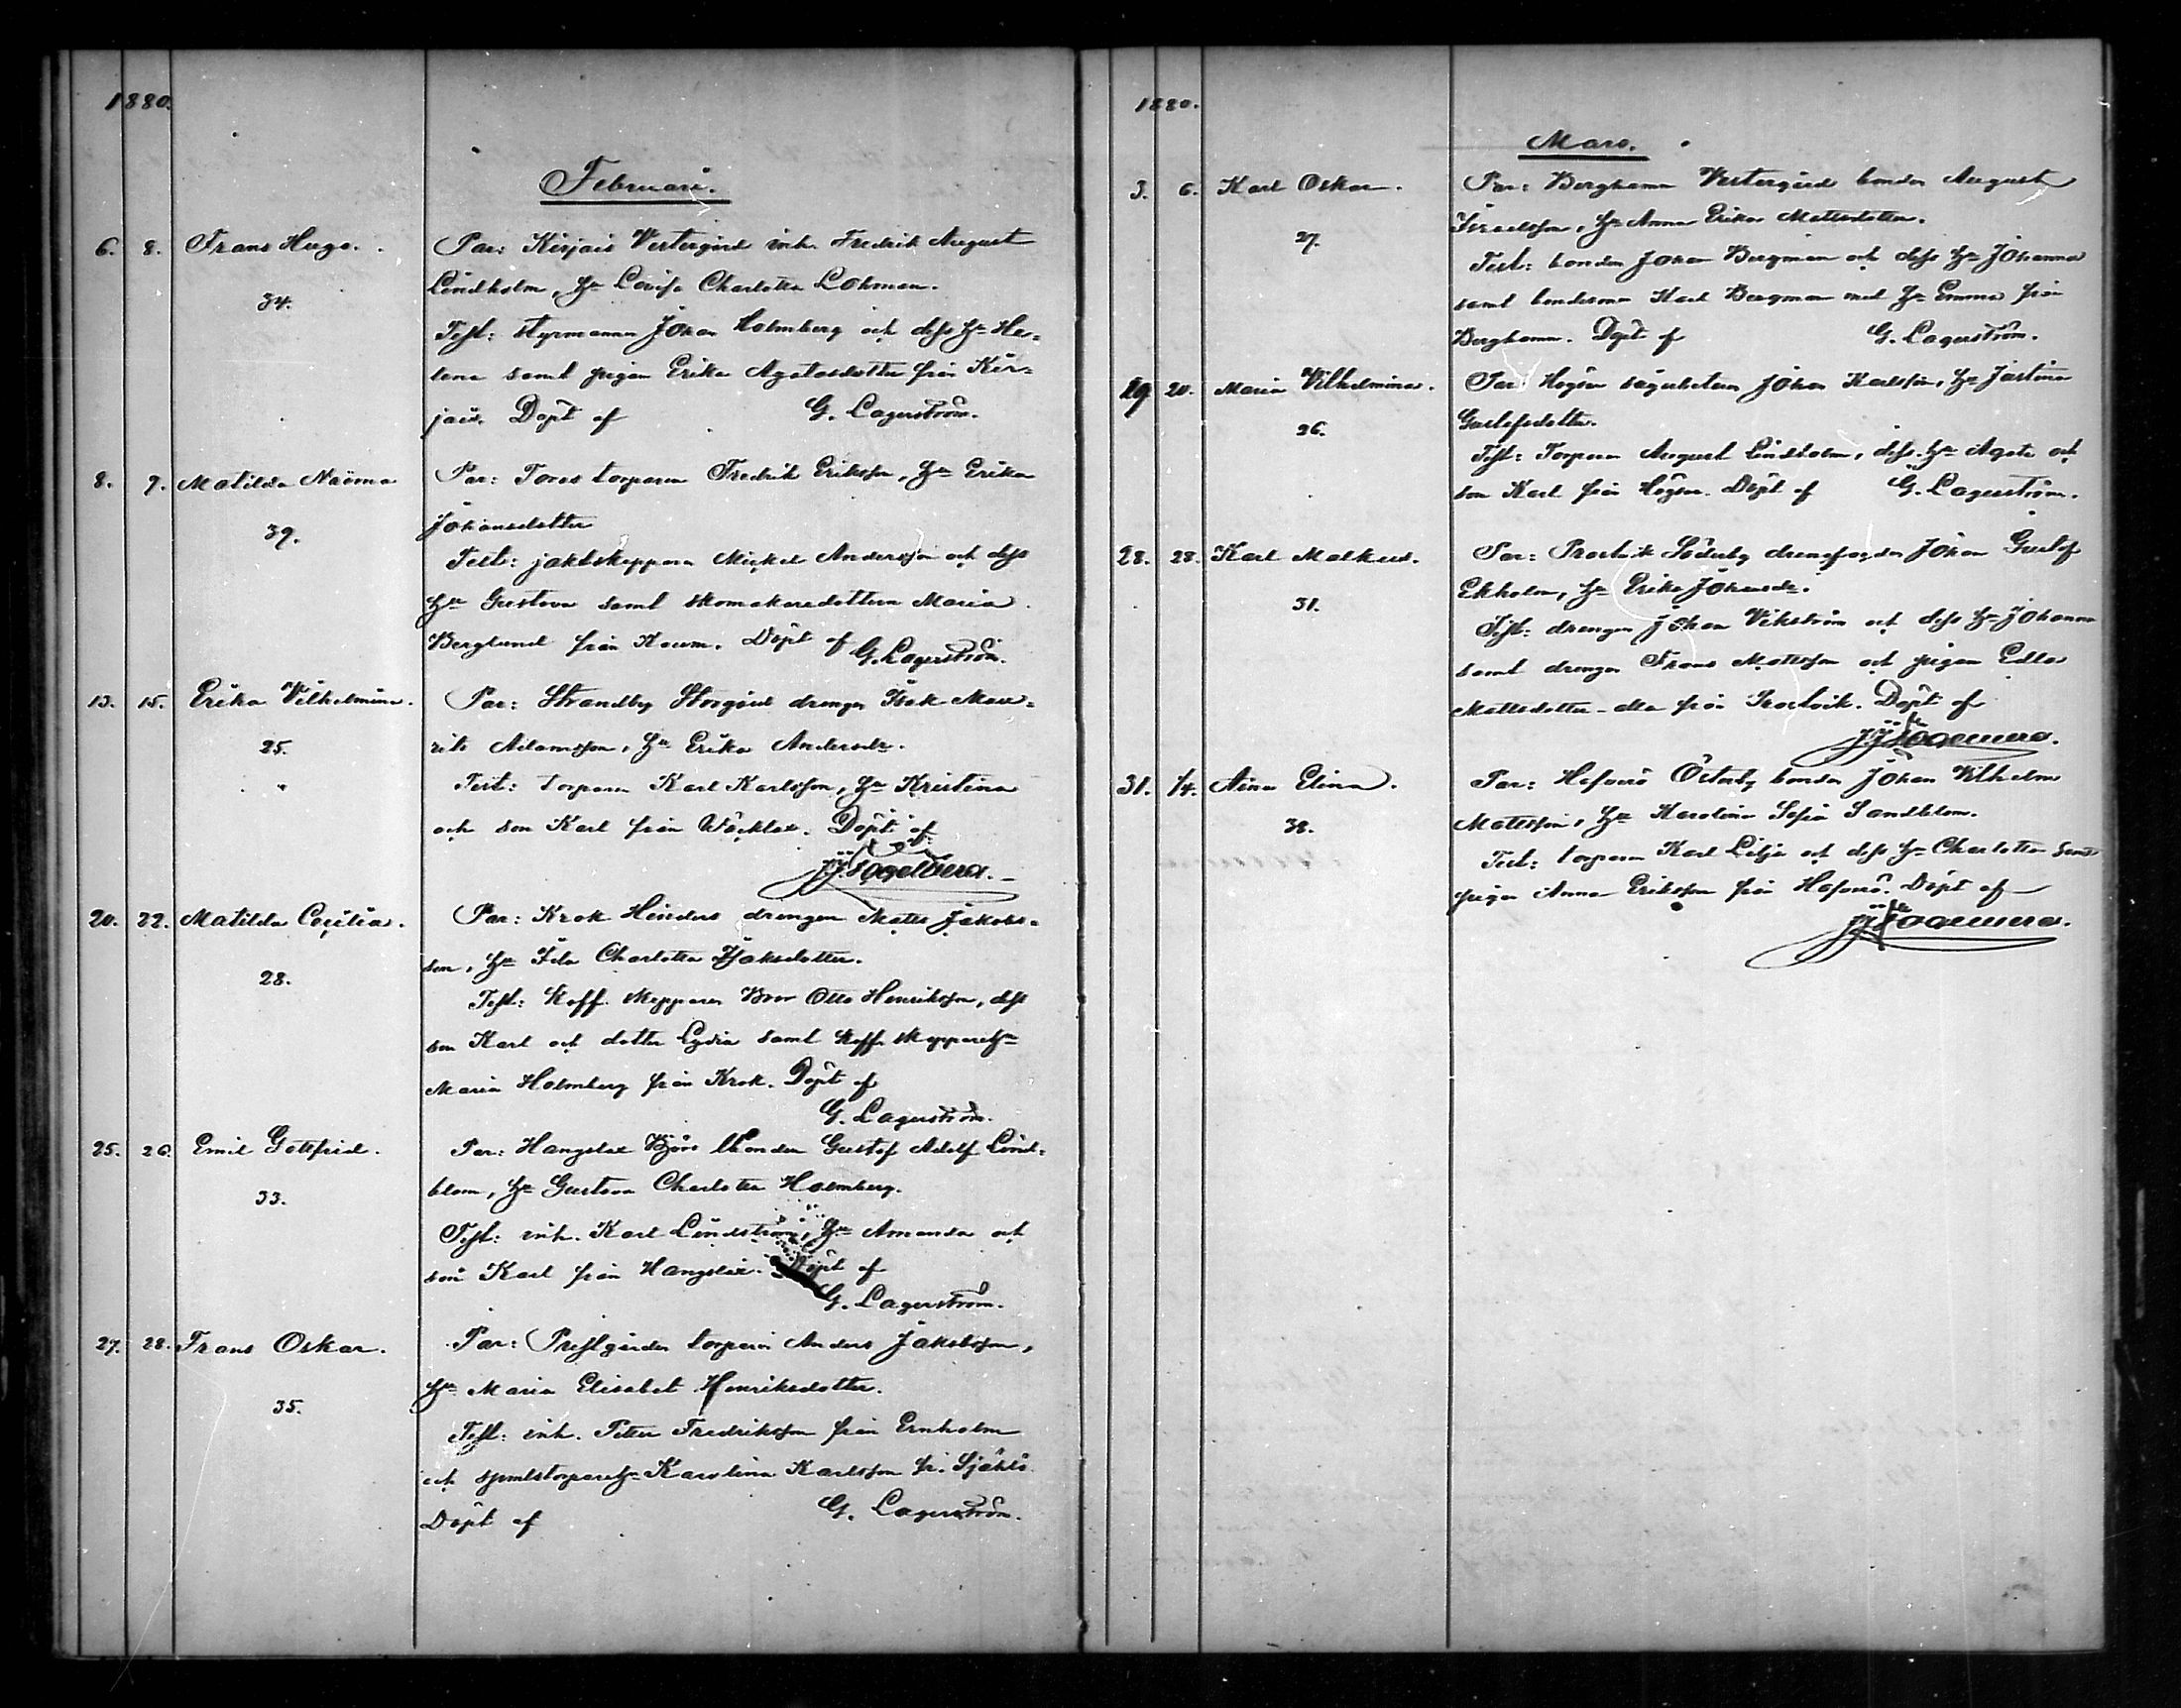 1880.
Februari.
6. 8. Frans Hugo. Par: Kirjais Vestergård inh. Fredrik August
Lindholm, Hu Lovisa Charlotta Lohman.
34.
Test: styrmannen Johan Holmberg och dess Hu He-
lena samt pigan Erika Agatasdotter från Kir-
jais. Döpt af G. Lagerström.
8. 9. Matilda Naëma Par: Tores torparen Fredrik Eriksson, Hu Erika
Johansdotter
39.
Test: jaktskepparen Mickel Andersson och dess
Hu Gustava samt skomakaredottern Maria
Berglund från Koum. Döpt af G. Lagerström.
13. 15. Erika Vilhelmina. Par: Strandby Storgård drengen Isak Mau-
rits Adamsson, Hu Erika Andersdr.
25.
Test: torparen Karl Karlsson, Hu Kristina
och son Karl från Wäcklax. Döpt af
20. 22. Matilda Cecilia. Par: Krok Hinders drengen Mats Jakobs-
son, Hu Ida Charlotta Isaksdotter.
28.
Test: Koff. skepparen Otto Henriksson, dess
son Karl och dotter Lydia samt Koff. skeppareHu
Maria Holmberg från Krok. Döpt af
G. Lagerström.
25. 26. Emil Gottfrid. Par: Hangslax bonden Gustaf Adolf Lind-
blom, Hu Gustava Charlotta Holmberg.
33.
Test: inh. Karl Lindström, Hu Amanda och
son Karl från Hangslax. Döpt af
G. Lagerström.
27. 28. Frans Oskar. Par: Prestgården torparen Anders Jakobsson,
Hu Maria Elisabet Henriksdotter.
35.
Test: inh. Peter Fredriksson från Ernholm
och Karolina Karlsson fr. Själö
Döpt af G. Lagerström.
1880.
Mars.
3. 6. Karl Oskar. Par: Berghamn Vestergård bonden August
Israelsson, Hu Anna Erika Mattsdotter.
27.
Test: bonden Johan Bergman och dess Hu Johanna
samt bondesonen Karl Bergman med Hu Emma från
Berghamn. Döpt af G. Lagerström.
19 20. Maria Vilhelmina. Par: Högsar Johan Karlsson, Hu Justina
Gustafsdotter.
26.
Test: Torparen August Lindholm, dess Hu Agata och
son Karl från Högsar. Döpt af G. Lagerström.
28. 28. Karl Malkus. Par: Prostvik Söderby Johan Gustaf
Ekholm, Hu Erika Johansdr.
31.
Test: drengen Johan Vikström och dess Hu Johanna
samt drengen Frans Matsson och pigan Edla
Mattsdotter alla från Prostvik. Döpt af
31. 1/4. Aina Elina. Par: Hafverö Österby bonden Johan Vilhelm
Matsson, Hu Karolina Sofia Sandblom.
38.
Test: torparen Karl Lilja och dess Hu Charlotta samt
pigan Anna Eriksson från Hafverö. Döpt af